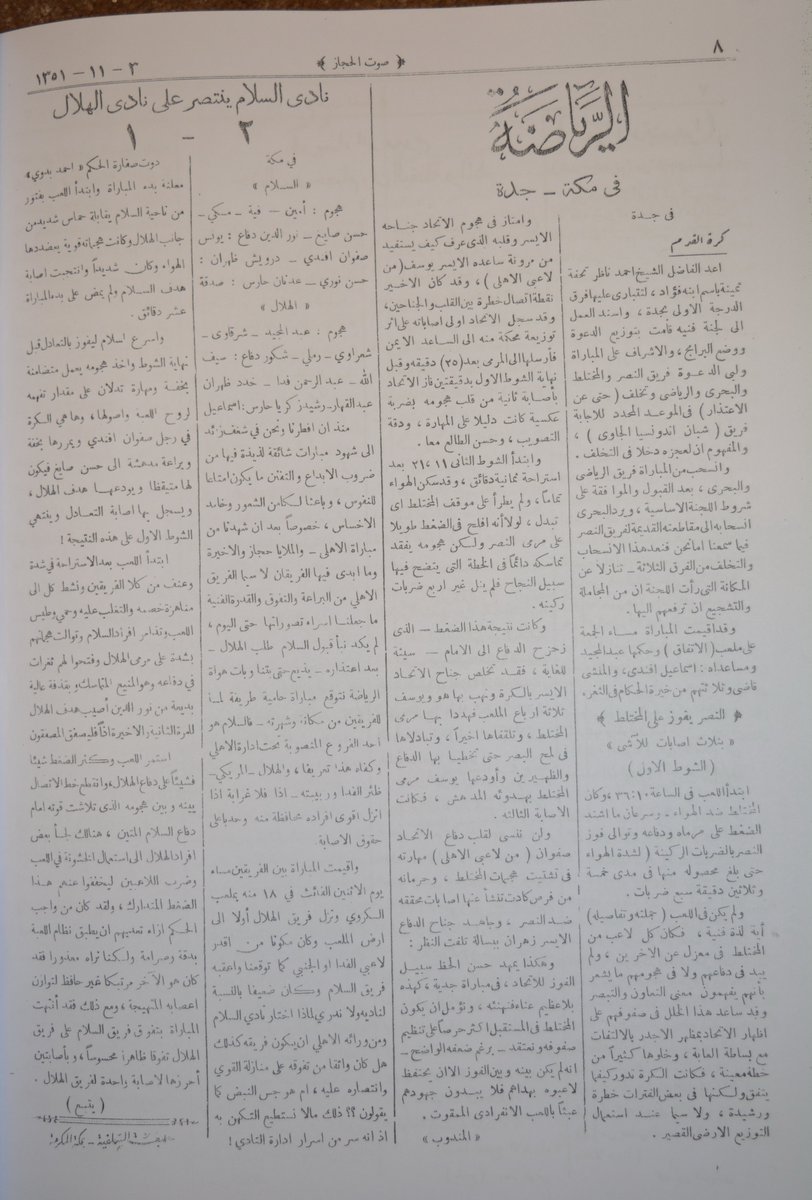 ٨
﴿ صوت الحجاز ﴾
٣ – ١١ – ١٣٥١
الرياضة
فى مكة – جدة
فى جدة
كرة القدم
اعد الفاضل الشيخ احمد ناظر تحفة
ثمينة باسم ابنه فؤاد، لتتبارى عليها فرق
الدرجة الاولى بجدة، واسند العمل
الى لجنة فنيه قامت بتوزيع الدعوة
ووضع البرامج، والاشراف على المباراة
ولبى الدعوة فريق النصر والمختلط
والبحرى والرياضى وتخلف (حتى عن
الاعتذار) فى الموعد المحدد للاجابة
فريق (شبان اندونسيا الجاوى)،
والمفهوم ان لعجزه دخلا فى التخلف.
وانسحب من المباراة فريق الرياضى
والبحرى، بعد القبول والموافقة على
شروط اللجنة الاساسية، ويرد البحرى
انسحابه الى مقاطعته القديمة لفريق النصر
فيما سمعنا اما نحن فنعد هذا الانسحاب
والتخلف من الفرق الثلاثة – تنازلا عن
المكانة التى رأت اللجنة ان من المجاملة
والتشجيع ان ترفعهم اليها.
وقد اقيمت المباراة مساء الجمعة
على ملعب (الاتفاق) وحكمها عبد المجيد
ومساعداه: اسماعيل افندى، والمنشى
قاضى وثلاثتهم من خيرة الحكام فى الثغر.
﴿ النصر يفوز على المختلط ﴾
« بثلاث اصابات للاشى »
(الشوط الاول)
ابتدأ اللعب فى الساعة ١٠:٣٦ وكان
المختلط ضد الهواء، وسرعان ما اشتد
الضغط على مرماه ودفاعه وتوالى فوز
النصر بالضربات الركنية (لشدة الهواء
حتى بلغ محصوله منها فى مدى خمسة
وثلاثين دقيقة سبع ضربات.
ولم يكن فى اللعب (جملته وتفاصيله)
أية لذة فنية، فكان كل لاعب من
المختلط فى معزل عن الاخرين، ولم
يبد فى دفاعهم ولا فى هجومهم ما يشعر
بأنهم يفهمون معنى التعاون والتبصر
وقد ساعد هذا الخلل فى صفوفهم على
اظهار الاتحاد بمظهر الاجدر بالالتفات
مع بساطة العابه، وخلوها كثيراً من
خطة معينة، فكانت الكرة تدور كيفما
يتفق ولكنها فى بعض الفترات خطرة
ورشيدة، ولا سيما عند استعمال
التوزيع الارضى القصير.
وامتاز فى هجوم الاتحاد جناحه
الايسر وقلبه الذى عرف كيف يستفيد
من مرونة ساعده الايسر يوسف (من
لاعبى الاهلى)، وقد كان الاخير
نقطة اتصال خطرة بين القلب والجناحين،
وقد سجل الاتحاد اولى اصاباته على اثر
توزيعة محكمة منه الى الساعد الايمن
فأرسلها الى المرمى بعد (٢٥) دقيقة وقبل
نهاية الشوط الاول بدقيقتين فاز الاتحاد
بأصابة ثانية من قلب هجومه بضربة
عكسية كانت دليلا على المهارة، ودقة
التصويب، وحسن الطالع معا.
وابتدأ الشوط الثانى ١١ر٢١ بعد
استراحة ثمانية دقائق، وقد سكن الهواء
تماماً، ولم يطرأ على موقف المختلط اى
تبدل، لولا أنه افلح فى الضغط طويلا
على مرمى النصر ولكن هجومه يفقد
تماسكه دائماً فى الخطة التى يتضح فيها
سبيل النجاح فلم ينل غير اربع ضربات
ركينه.
وكانت نتيجة هذا الضغط – الذى
زحزح الدفاع الى الامام – سيئة
للغاية، فقد تخلص جناح الاتحاد
الايسر بالكرة ونهب بها هو ويوسف
ثلاثة ارباع الملعب فهددا بها مرمى
المختلط، وتلقفاها اخيراً، وتبادلاها
فى لمح البصر حتى تخطيا بها الدفاع
والظهيرين وأودعها يوسف مرمى
المختلط بهدوئه المدهش، فكانت
الاصابة الثالثة.
ولن ننسى لقلب دفاع الاتحاد
صفوان (من لاعبى الاهلى) مهارته
فى تشتيت هجمات المختلط، وحرمانه
من فرص كادت تنشأ عنها اصابات محققه
ضد النصر، وجاهد جناح الدفاع
الايسر زهران ببسالة تلفت النظر:
وهكذا يمهد حسن الحظ سبيل
الفوز للاتحاد، فى مباراة جدية، كهذه
بلا عظيم عناء فنهنئه، ونؤمل ان يكون
المختلط فى المستقبل اكثر حرصا على تنظيم
صفوفه ونعتقد – برغم ضعفه الواضح –
انه لم يكن بينه وبين الفوز الا ان يحتفظ
لاعبوه بهدائهم فلا يبددون جهودهم
عبثاً باللعب الانفرادى الممقوت.
« المندوب »
نادى السلام ينتصر على نادى الهلال
٢ – ١
فى مكة
« السلام »
هجوم: أمين – فية – مكي –
حسن صايغ – نور الدين دفاع: يونس
صفوان افندي – درويش ظهران:
حسن نوري – عدنان حارس: صدقة
« الهلال »
هجوم: عبد المجيد – شرقاوى –
شعراوي – رملي – شكور دفاع: سيف
الله – عبد الرحمن فدا – خدد ظهران
عبد القهار – رشيد زكريا حارس: اسماعيل
منذ ان افطرنا ونحن فى شغف زائد
الى شهود مبارات شائقة لذيذة فيها من
ضروب الابداع والتفنن ما يكون امتاعا
للنفوس، وباعثا لكامن الشعور وخامد
الاحساس، خصوصاً بعد ان شهدنا من
مباراة الاهلى – والملايا حجاز والاخيرة
وما ابدى فيها الفريقان لا سيما الفريق
الاهلي من البراعة والتفوق والقدرة الفنية
ما جعلنا اسراء تصوراتها حتى اليوم،
لم يكد نبأ قبول السلام طلب الهلال –
بعد اعتذاره – يذيع حتى بتنا وبات هواة
الرياضة نتوقع مباراة حامية طريفة لما
للفريقين من مكانة وشهرة – فالسلام هو
أحد الفروع المنضوية تحت ادارة الاهلي
وكفاه هذا تعريفا، والهلال – المريكي –
ظائر الفدا وربيبته – اذا فلا غرابة اذا
انزل اقوى افراده محافظة منه وحدبا على
حقوق الاصابة.
واقيمت المباراة بين الفريقين مساء
يوم الاثنين الفائت فى ١٨ منه بملعب
السكروى ونزل فريق الهلال أولا الى
ارض الملعب وكان مكونا من اقدر
لاعبي الفدا او الجنبي كما توقعنا واعقبه
فريق السلام وكان ضعيفا بالنسبة
لناديه ولا ندري لماذا اختار نادي السلام
ومن ورائه الاهلي ان يكون فريقه كذلك
هل كان واثقا من تفوقه على منازلة القوي
وانتصاره عليه، ام هو جس النبض كما
يقولون؟؟ ذلك مالا نستطيع التكهن به
اذ انه سر من اسرار ادارة النادي!
دوت صفارة الحكم « احمد بدوي»
معلنة بدء المباراة وابتدأ اللعب بفتور
من ناحية السلام يقابلة حماس شديد من
جانب الهلال وكانت هجماته قوية يعضدها
الهواء وكان شديداً وانتجت اصابة
هدف السلام ولم يمض على بدء المباراة
عشر دقائق.
واسرع اسلام ليفوز بالتعادل قبل
نهاية الشوط واخذ هجومه يعمل متضامنة
بخفة ومهارة تدلان على مقدار تفهمه
لروح اللعبة واصولها، وها هي الكرة
فى رجل صفوان افندي ويمررها بخفة
وبراعة مدهشة الى حسن صايغ فيكون
لها متيقظا ويودعها هدف الهلال،
ويسجل بها اصابة التعادل وينتهي
الشوط الاول على هذه النتيجة!
ابتدأ اللعب بعد الاستراحة فى شدة
وعنف من كلا الفريقين ونشط كل الى
مناهزة خصمه والتغلب عليه، وحمي وطيس
اللعب وتذامر افراد السلام وتوالت هجماتهم
بشدة على مرمى الهلال وفتحوا لهم ثغرات
فى دفاعه وهو المنيع المتماسك وبقذفة عالية
بديعة من نور الدين أصيب هدف الهلال
للمرة الثانية والاخيرة اذا فليصفق المصفقون
استمر اللعب وكثر الضغط شيئا
فشيئاً على دفاع الهلال، وانقطع خط الاتصال
بينه وبين هجومه الذى تلاشت قوته امام
دفاع السلام المتين، هنالك لجأ بعض
افراد الهلال الى استعمال الخشونة في اللعب
وضرب اللاعبين ليخففوا عنهم هذا
الضغط المتدارك، ولقد كان من واجب
الحكم ازاء تعديهم ان يطبق نظام اللعبة
بدقة وصرامة ولكننا نراه معذورا فقد
كان هو الآخر مرتبكا غير حافظ لتوازن
اعصابه المتهيجة، ومع ذلك فقد أنتهت
المباراة بتفوق فريق السلام على فريق
الهلال تفوقا ظاهرا محسوسا، وبأصابتين
أحرزها الاصابة واحدة لفريق الهلال.
(يتبع)
المطبعة السلفية – بمكة المكرمة